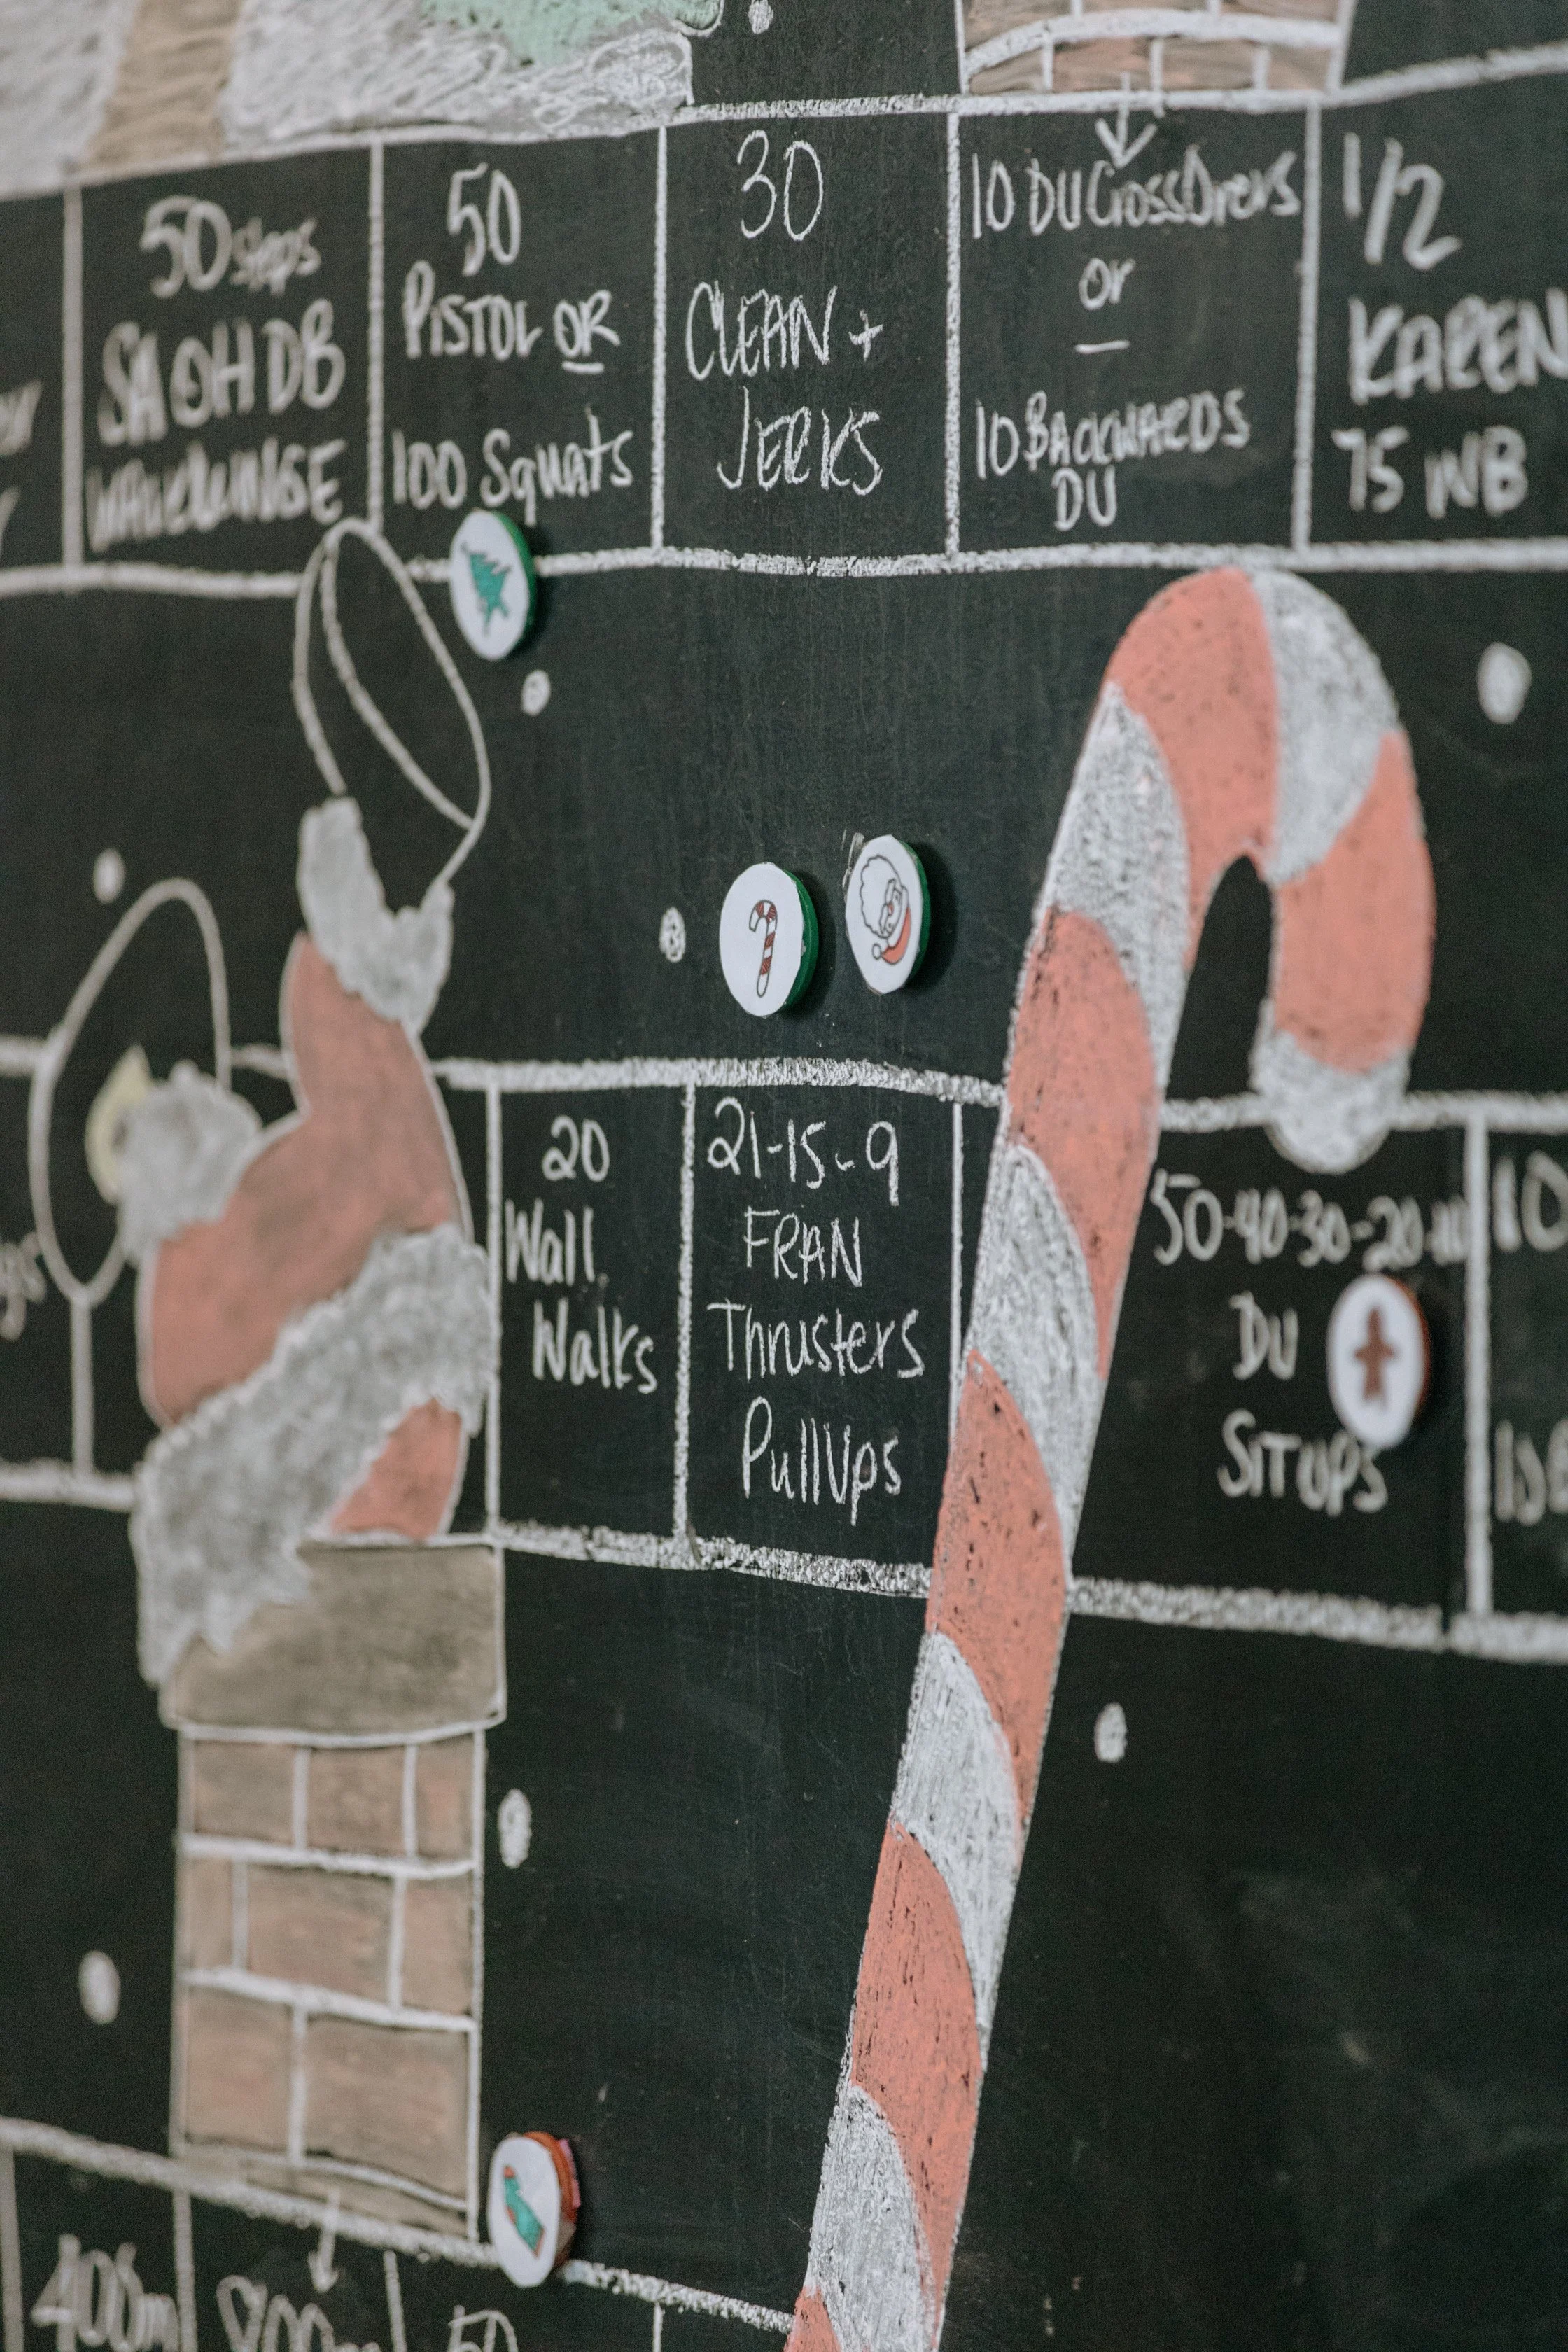 50 steps
SA OH DB
50
PISTOL OR
100 Squats
30
CLEAN +
JERKS
10 DU
or
10 BACKWARDS
DU
1/2
KAREN
75 WB
20
Wall
Walks
21-15-9
FRAN
Thrusters
PullUps
50-40-30-20-10
DU
SITUPS
10
400m
800m
50